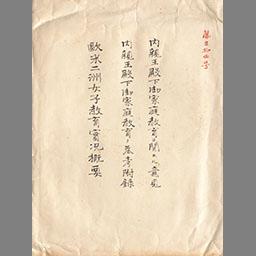 内親王殿下御家庭教育ニ関スル意見
内親王殿下御家庭教育ノ参考附録
欧米二洲女子教育実況概要